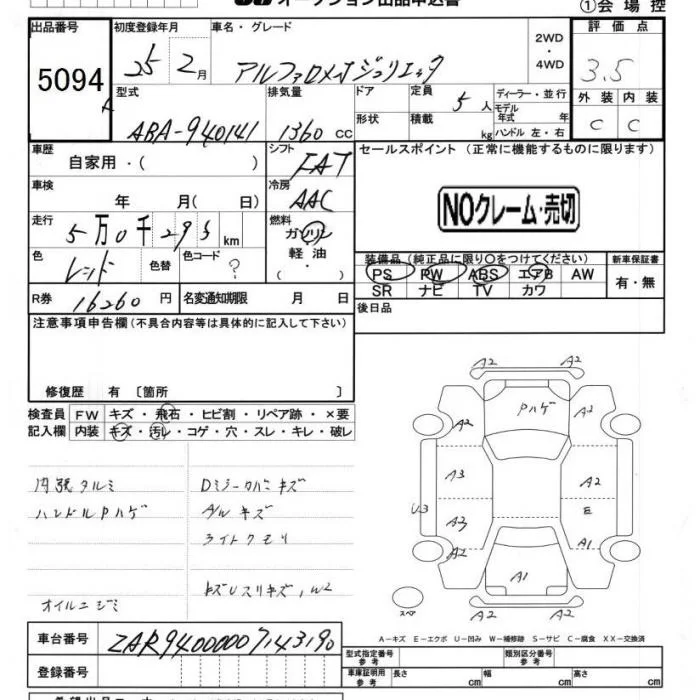 オークション出品申込書
①会場控
出品番号 初度登録年月 車名・グレード 2WD・4WD 評価点
5094 25年2月 アルファロメオジュリエッタ 3.5
型式 排気量 ドア 定員 5人 ディーラー・並行 外装 内装
ABA-940141 1360cc 形状 積載 kg モデル年式 年 ハンドル 左・右 C C
車歴 自家用・( ) シフト FAT セールスポイント (正常に機能するものに限ります)
車検 年 月( 日) 冷房 AAC
NOクレーム・売切
走行 5万0千295km 燃料 ガソリン 軽油 ( ・ )
色 レッド 色替 色コード ?
装備品 (純正品に限り○をつけてください) 新車保証書
PS PW ABS エアB AW 有・無
SR ナビ TV カワ
R券 16260円 名変通知期限 月 日
後日品
注意事項申告欄(不具合内容等は具体的に記入して下さい)
修復歴 有 〔箇所 〕
検査員 FW キズ・飛石・ヒビ割・リペア跡・×要
記入欄 内装 キズ・汚レ・コゲ・穴・スレ・キレ・破レ
内張タルミ Dミラーカバーキズ
ハンドルPハゲ A/Wキズ
ライトクモリ
キズUスリキズ,W2
オイルニジミ
A2 A2
Pハゲ
A2 A2
A3 A2
U3 E
A3
A2 A1
A1
スペア A2 A2
A-キズ E-エクボ U-凹み W-補修跡 S-サビ C-腐食 XX-交換済
車台番号 ZAR94000007143190
型式指定番号 参考 類別区分番号 参考
登録番号
車庫証明用 参考 長さ cm 幅 cm 高さ cm